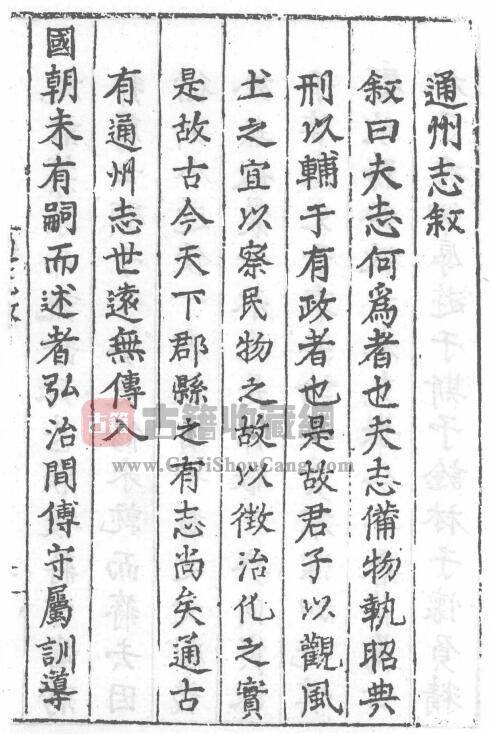 通州志敘
敘曰夫志何爲者也夫志備物執昭典
刑以輔于有政者也是故君子以觀風
土之宜以察民物之故以徴治化之實
是故古今天下郡縣之有志尚矣通古
有通州志世遠無傳入
國朝未有嗣而述者弘治間傅守屬訓導
古籍
古籍收藏網
www.GuJiShouCang.com